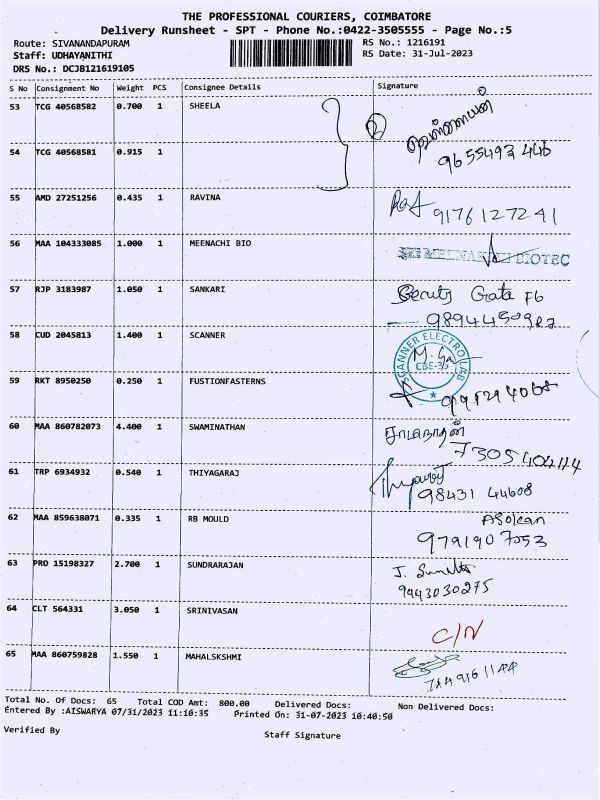 THE PROFESSIONAL COURIERS, COIMBATORE
Delivery Runsheet - SPT - Phone No.:0422-3505555 - Page No.:5
Route: SIVANANDAPURAM
Staff: UDHAYANITHI
DRS No.: DCJB121619105
RS No.: 1216191
RS Date: 31-Jul-2023
S No Consignment No Weight PCS Consignee Details Signature
53 TCG 40568582 0.700 1 SHEELA
2
9655493446
54 TCG 40568581 0.915 1
55 AMD 27251256 0.435 1 RAVINA
9176127241
56 MAA 104333085 1.000 1 MEENACHI BIO
57 RJP 3183987 1.050 1 SANKARI
Gate F6
58 CUD 2045813 1.400 1 SCANNER
SCANNER ELECTRO LAB
CBE-35
59 RKT 8950250 0.250 1 FUSTIONFASTERNS
60 MAA 860782073 4.400 1 SWAMINATHAN
சாமிநாதன்
61 TRP 6934932 0.540 1 THIYAGARAJ
98431 44608
62 MAA 859638071 0.335 1 RB MOULD
Asokan
9791907053
63 PRO 15198327 2.700 1 SUNDRARAJAN
9443030275
64 CLT 564331 3.050 1 SRINIVASAN
C/N
65 MAA 860759828 1.550 1 MAHALSKSHMI
Total No. Of Docs: 65 Total COD Amt: 800.00 Delivered Docs: Non Delivered Docs:
Entered By :AISWARYA 07/31/2023 11:10:35 Printed On: 31-07-2023 10:40:50
Verified By Staff Signature